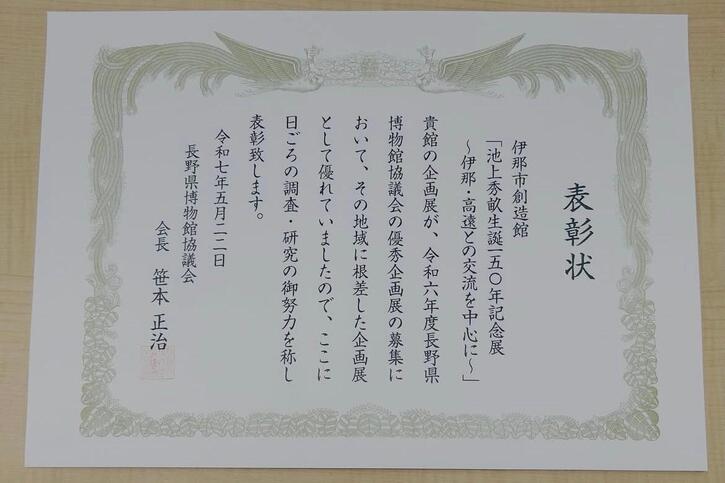 表彰状
伊那市創造館
「池上秀畝生誕一五〇年記念展
〜伊那・高遠との交流を中心に〜」
貴館の企画展が、令和六年度長野県
博物館協議会の優秀企画展の募集に
おいて、その地域に根差した企画展
として優れていましたので、ここに
日ごろの調査・研究の御努力を称し
表彰致します。
令和七年五月二二日
長野県博物館協議会
会長 笹本 正治